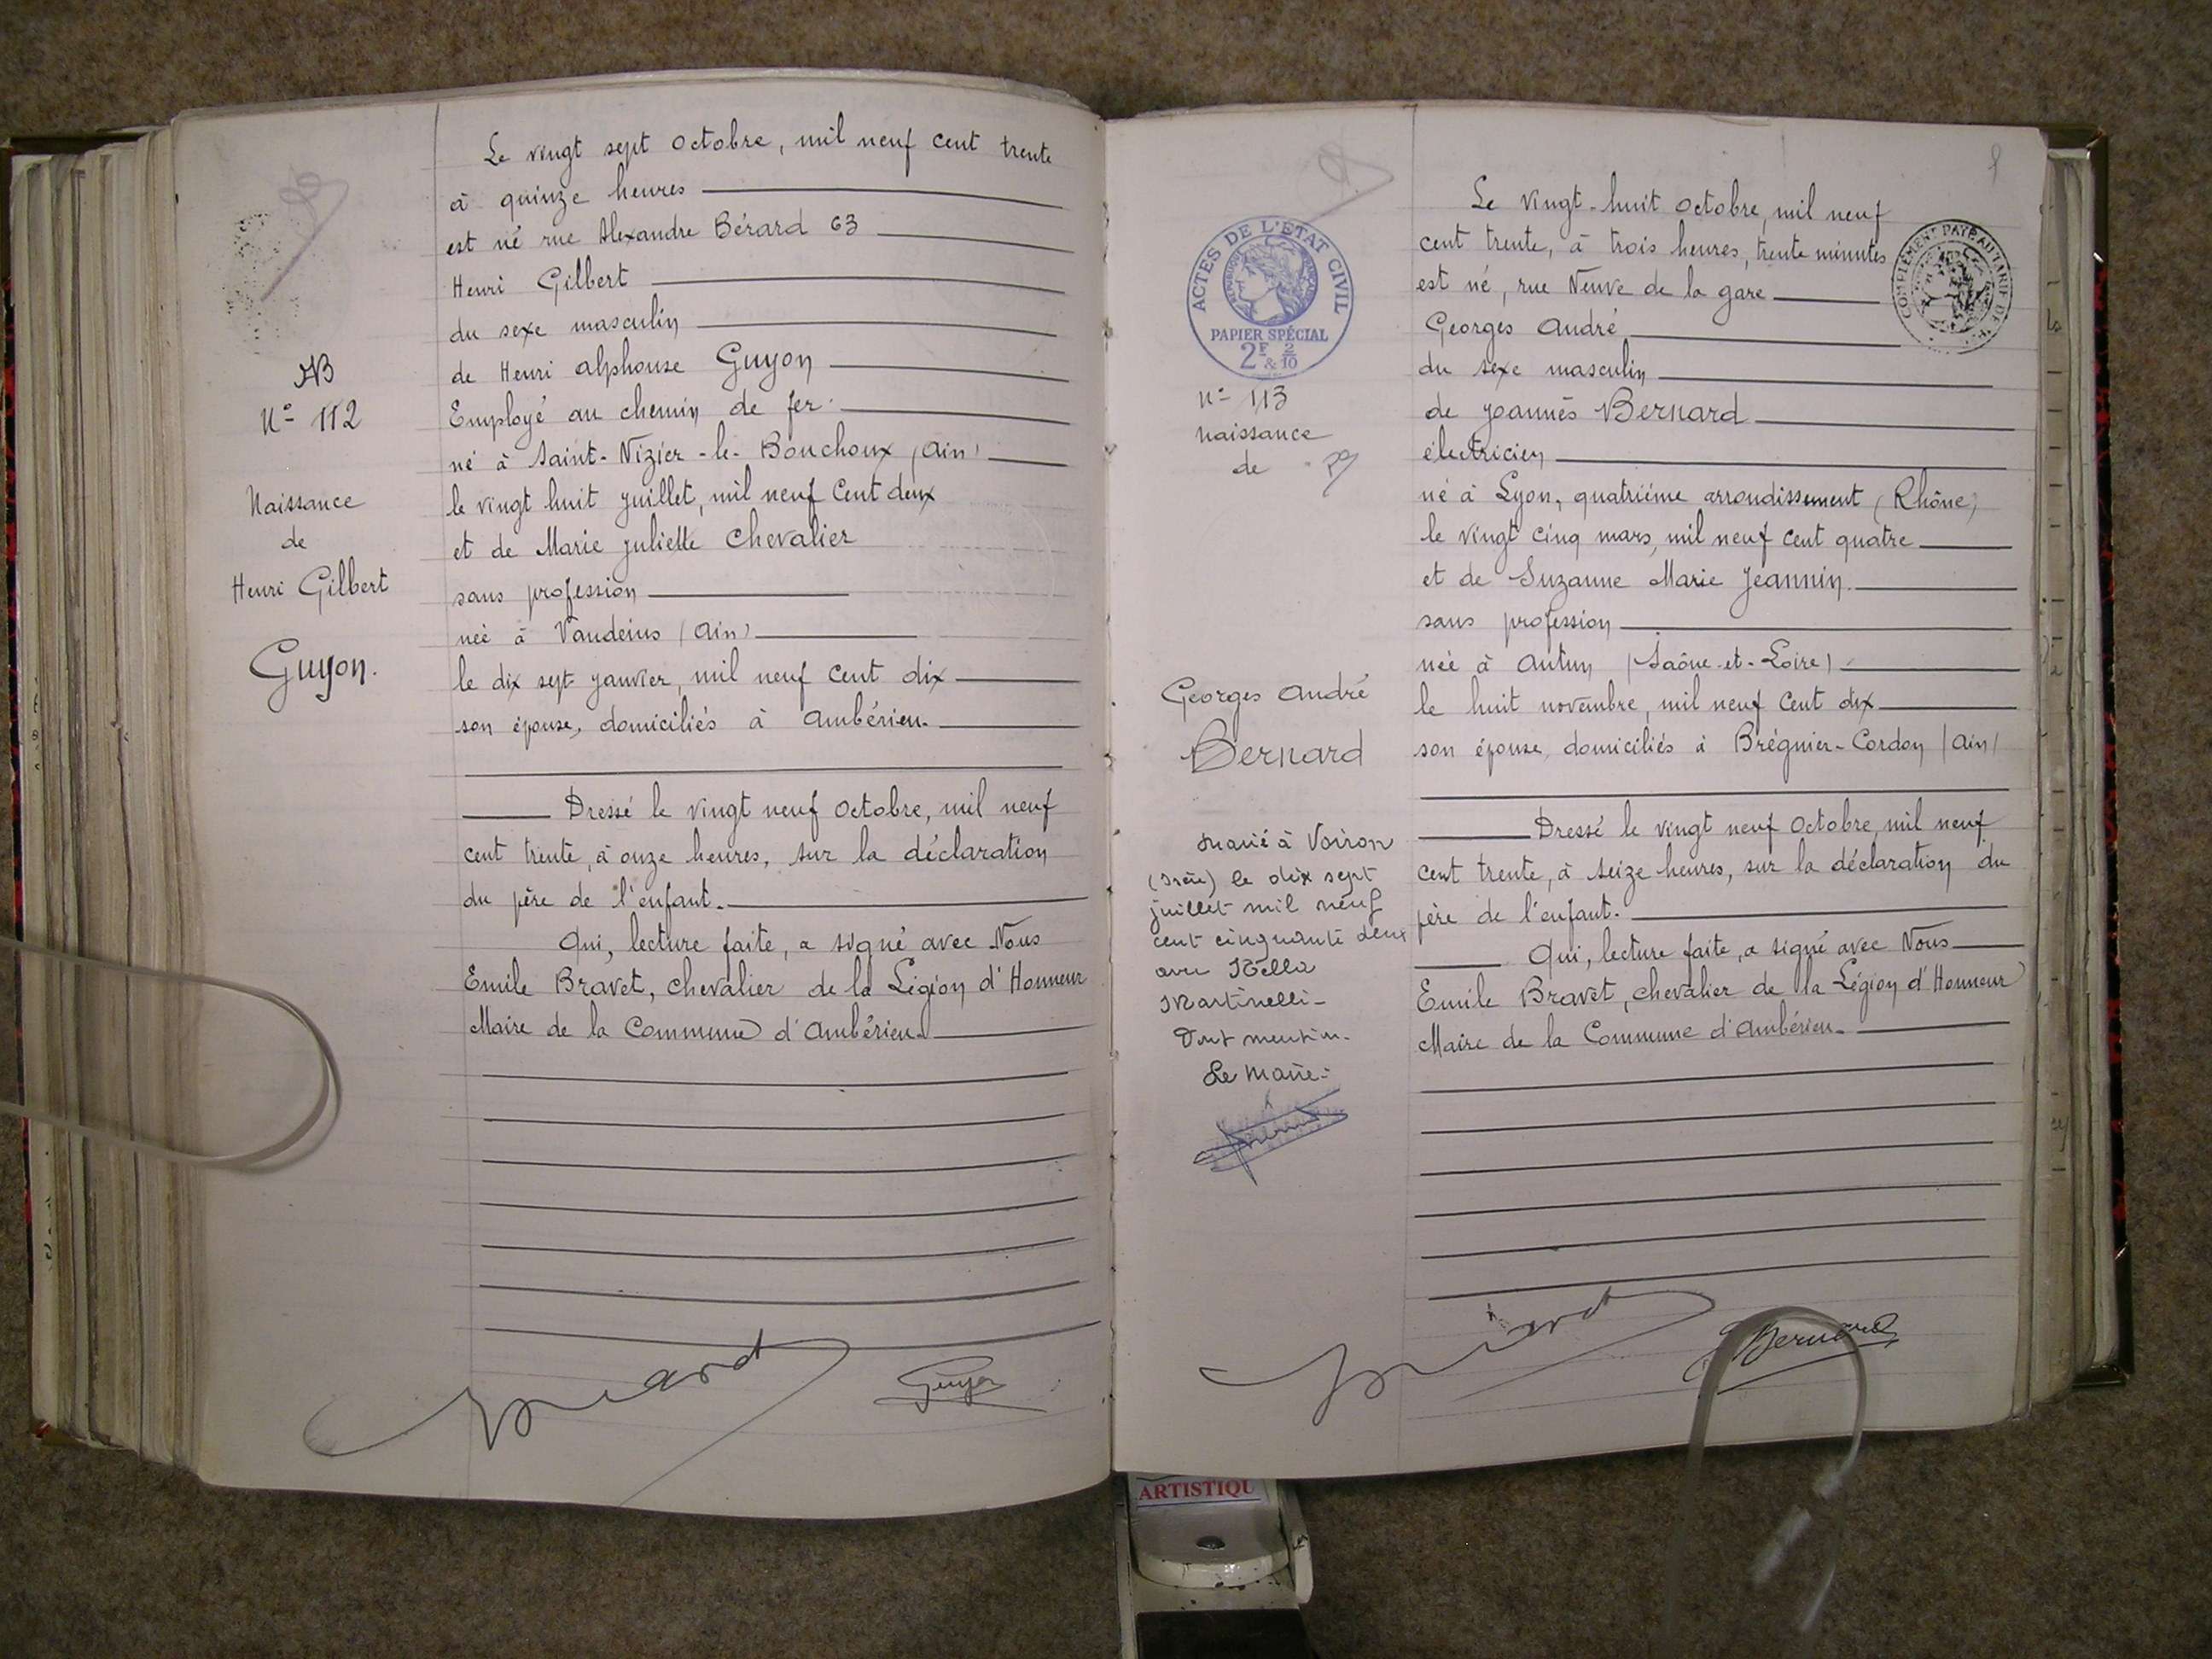 AB
N° 112
Naissance
de
Henri Gilbert
Guyon.
Le vingt sept octobre, mil neuf cent trente
à quinze heures
est né rue Alexandre Bérard 63
Henri Gilbert
du sexe masculin
de Henri Alphonse Guyon
Employé au chemin de fer.
né à Saint-Nizier-le-Bouchoux (Ain)
le vingt huit juillet, mil neuf cent deux
et de Marie Juliette Chevalier
sans profession
née à Vandeins (Ain)
le dix sept janvier, mil neuf cent dix
son épouse, domiciliés à Ambérieu.
Dressé le vingt neuf octobre, mil neuf
cent trente, à onze heures, sur la déclaration
du père de l'enfant.
Qui, lecture faite, a signé avec Nous
Emile Bravet, chevalier de la Légion d'Honneur
Maire de la Commune d'Ambérieu.
Guyon
ACTES DE L'ETAT CIVIL
PAPIER SPÉCIAL
2F & 2/10
n° 113
naissance
de
Georges André
Bernard
Marié à Voiron
(Isère) le dix sept
juillet mil neuf
cent cinquante deux
avec
Martinelli-
Dont mention.
Le Maire:
Le vingt-huit octobre, mil neuf
cent trente, à trois heures, trente minutes
est né, rue Neuve de la gare
Georges André
du sexe masculin
de Joannès Bernard
électricien
né à Lyon, quatrième arrondissement (Rhône)
le vingt cinq mars, mil neuf cent quatre
et de Suzanne Marie Jeannin.
sans profession
née à Autun (Saône-et-Loire)
le huit novembre, mil neuf cent dix
son épouse, domiciliés à Brégnier-Cordon (Ain)
Dressé le vingt neuf octobre, mil neuf
cent trente, à seize heures, sur la déclaration du
père de l'enfant.
Qui, lecture faite, a signé avec Nous
Emile Bravet, chevalier de la Légion d'Honneur
Maire de la Commune d'Ambérieu.
Bernard
COMPLÉMENT PAYÉ AU TARIF DE
ARTISTIQU